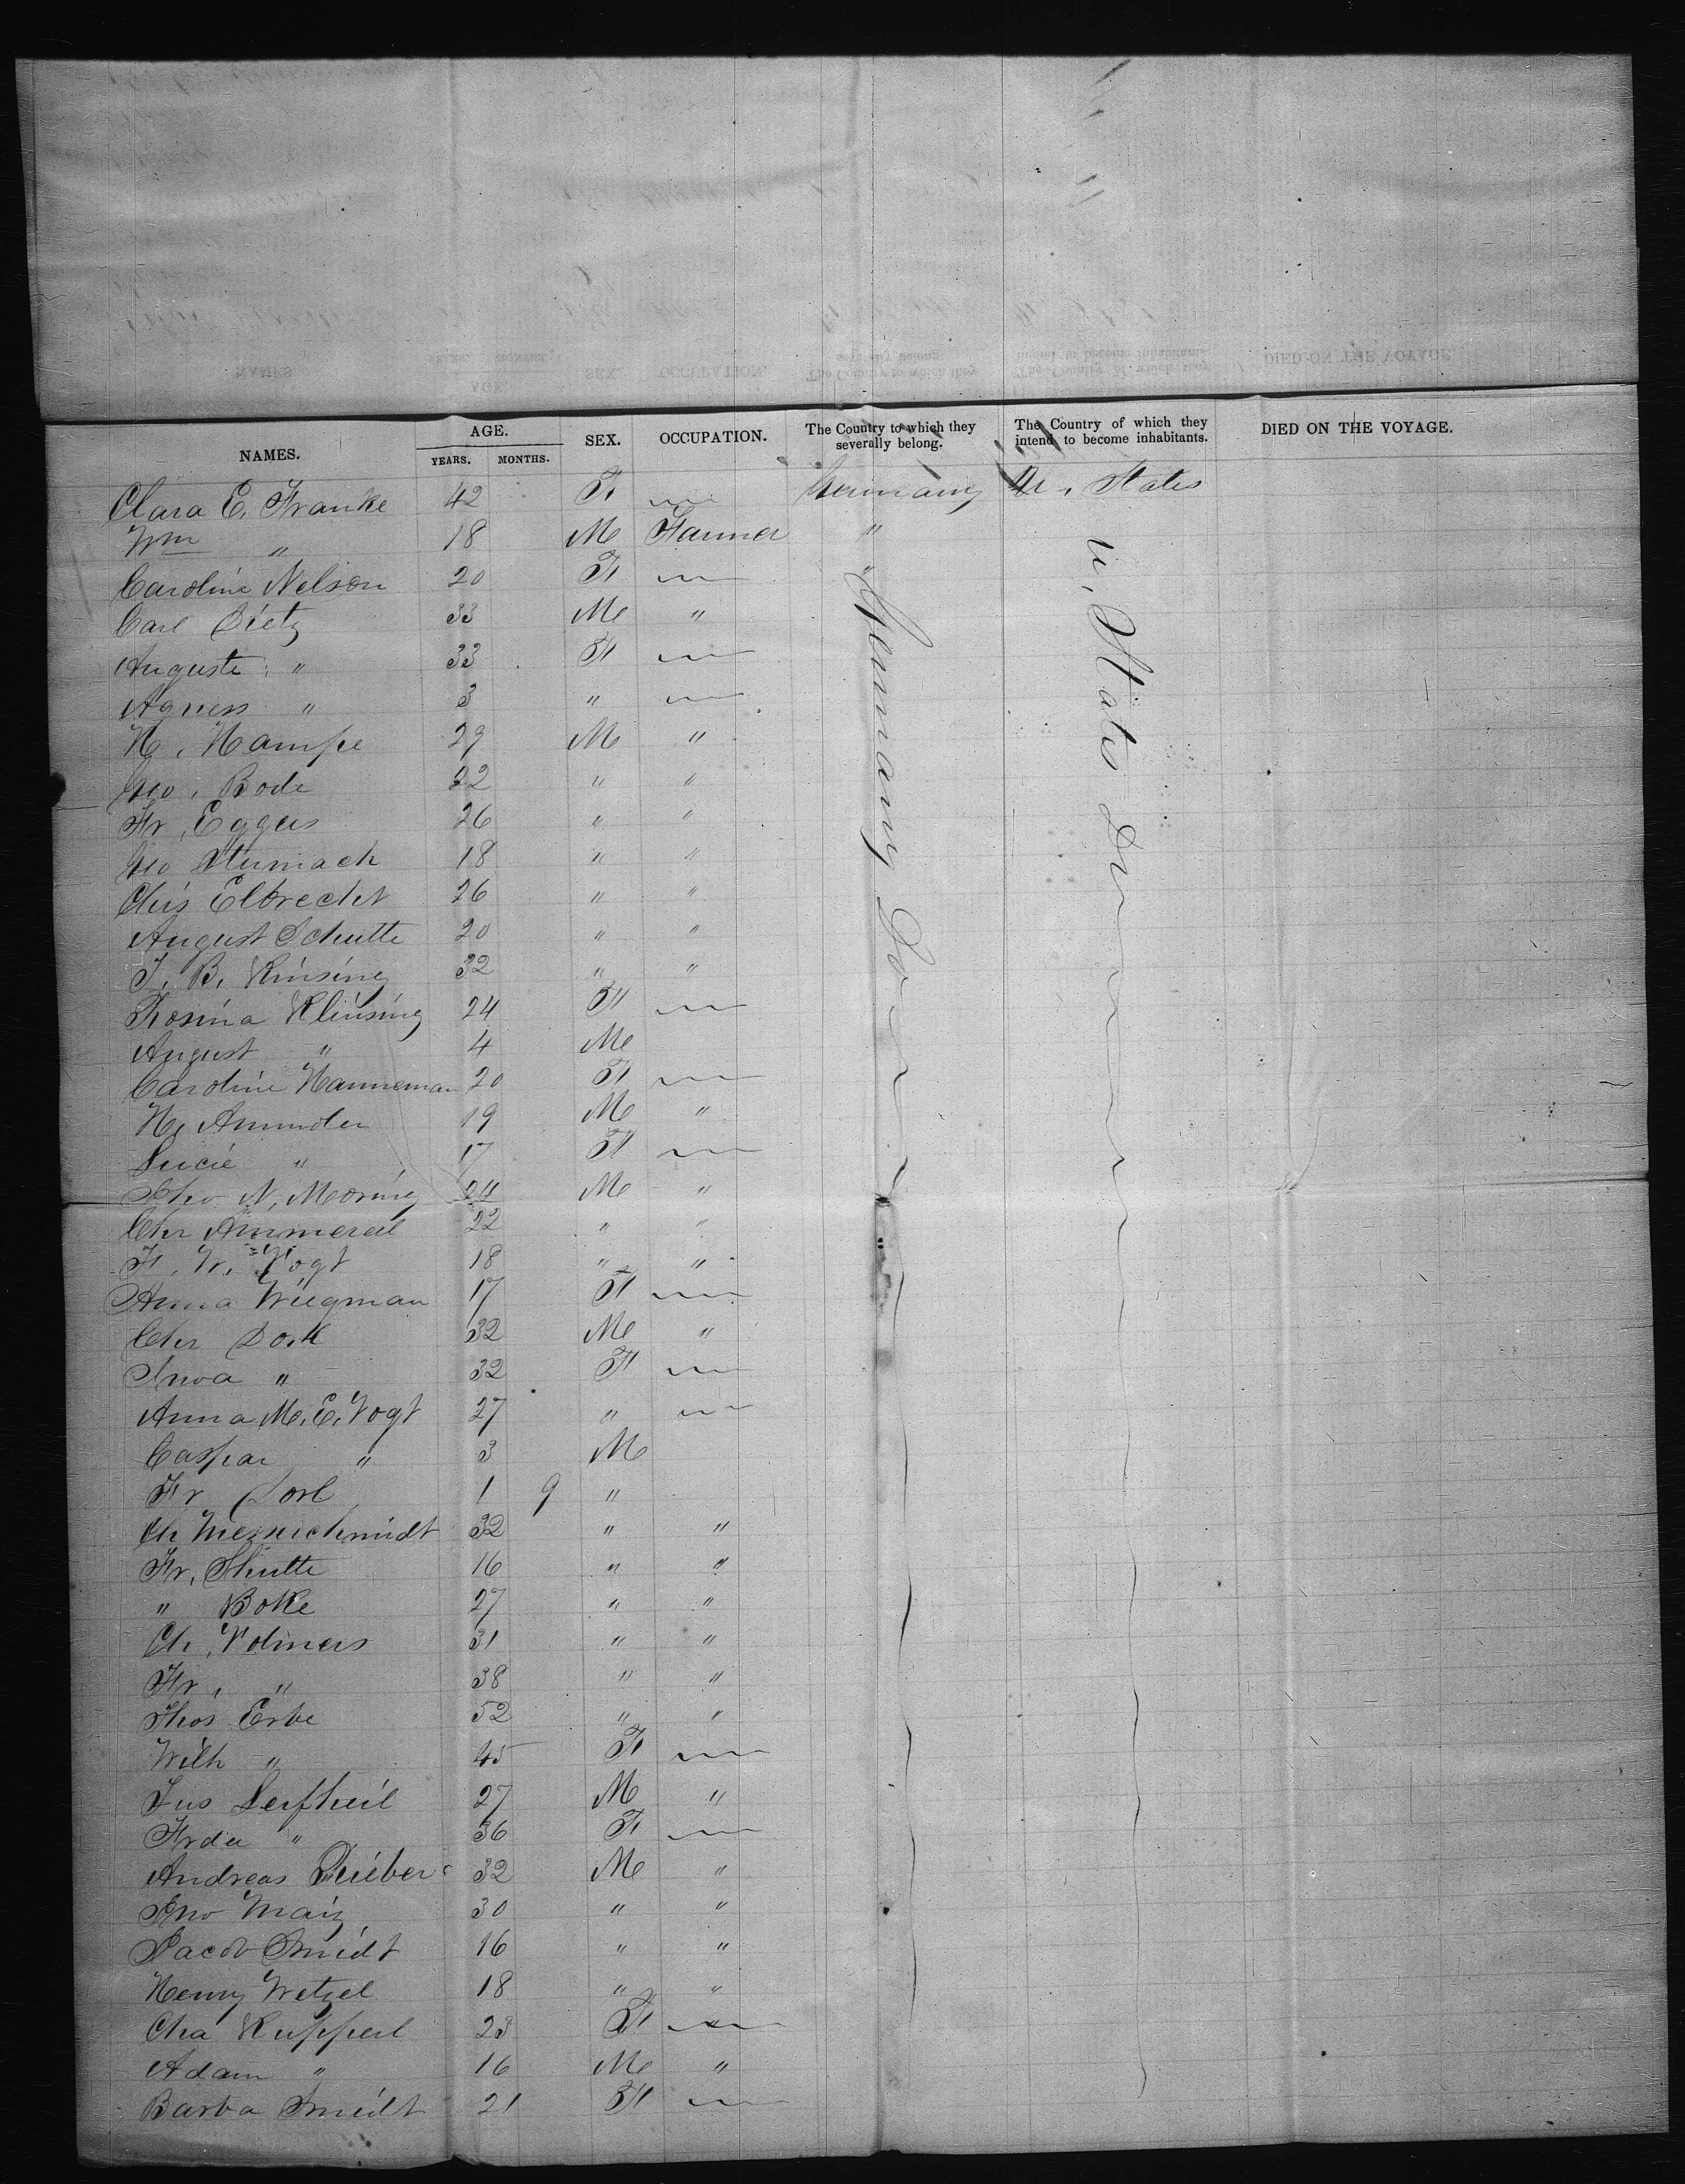 NAMES. AGE. SEX. OCCUPATION. The Country to which they severally belong. The Country of which they intend to become inhabitants. DIED ON THE VOYAGE.
YEARS. MONTHS.
Clara E. Franke 42 F — Germany U. States
Wm " 18 M Farmer "
Caroline Nelson 20 F — "
Carl Dietz 33 M "
Auguste " 33 F —
Agness " 3 " —
H. Hampe 29 M "
Geo. Bode 22 " "
Fr. Eggers 26 " "
Geo 18 " "
Chis Elbrecht 26 " "
August Schutte 20 " "
J. B. Kinsing 32 " "
Rosina Klinsing 24 F —
August " 4 M
Caroline Hanneman 20 F —
H. 19 M "
Lucie " 17 F —
N. Moring 24 M "
Chr 22 " "
F. W. Vogt 18 " "
Anna Wiegman 17 F —
Chr 32 M "
" 32 F —
Anna M. E. Vogt 27 " —
Caspar " 3 M
Fr 1 9 "
Ch Messerschmidt 32 " "
Fr. Shutte 16 " "
" Boke 27 " "
Ch. Volmers 31 " "
Fr. " 38 " "
Thos Erbe 52 " "
Wilh " 45 F —
Jus 27 M "
" 36 F —
Andreas 32 M "
Jno Maiz 30 " "
Jacob Smidt 16 " "
Henry Wetzel 18 " "
Cha Ruppeil 23 F —
Adam " 16 M "
Barba Smidt 21 F —
Germany Do
U. States Do